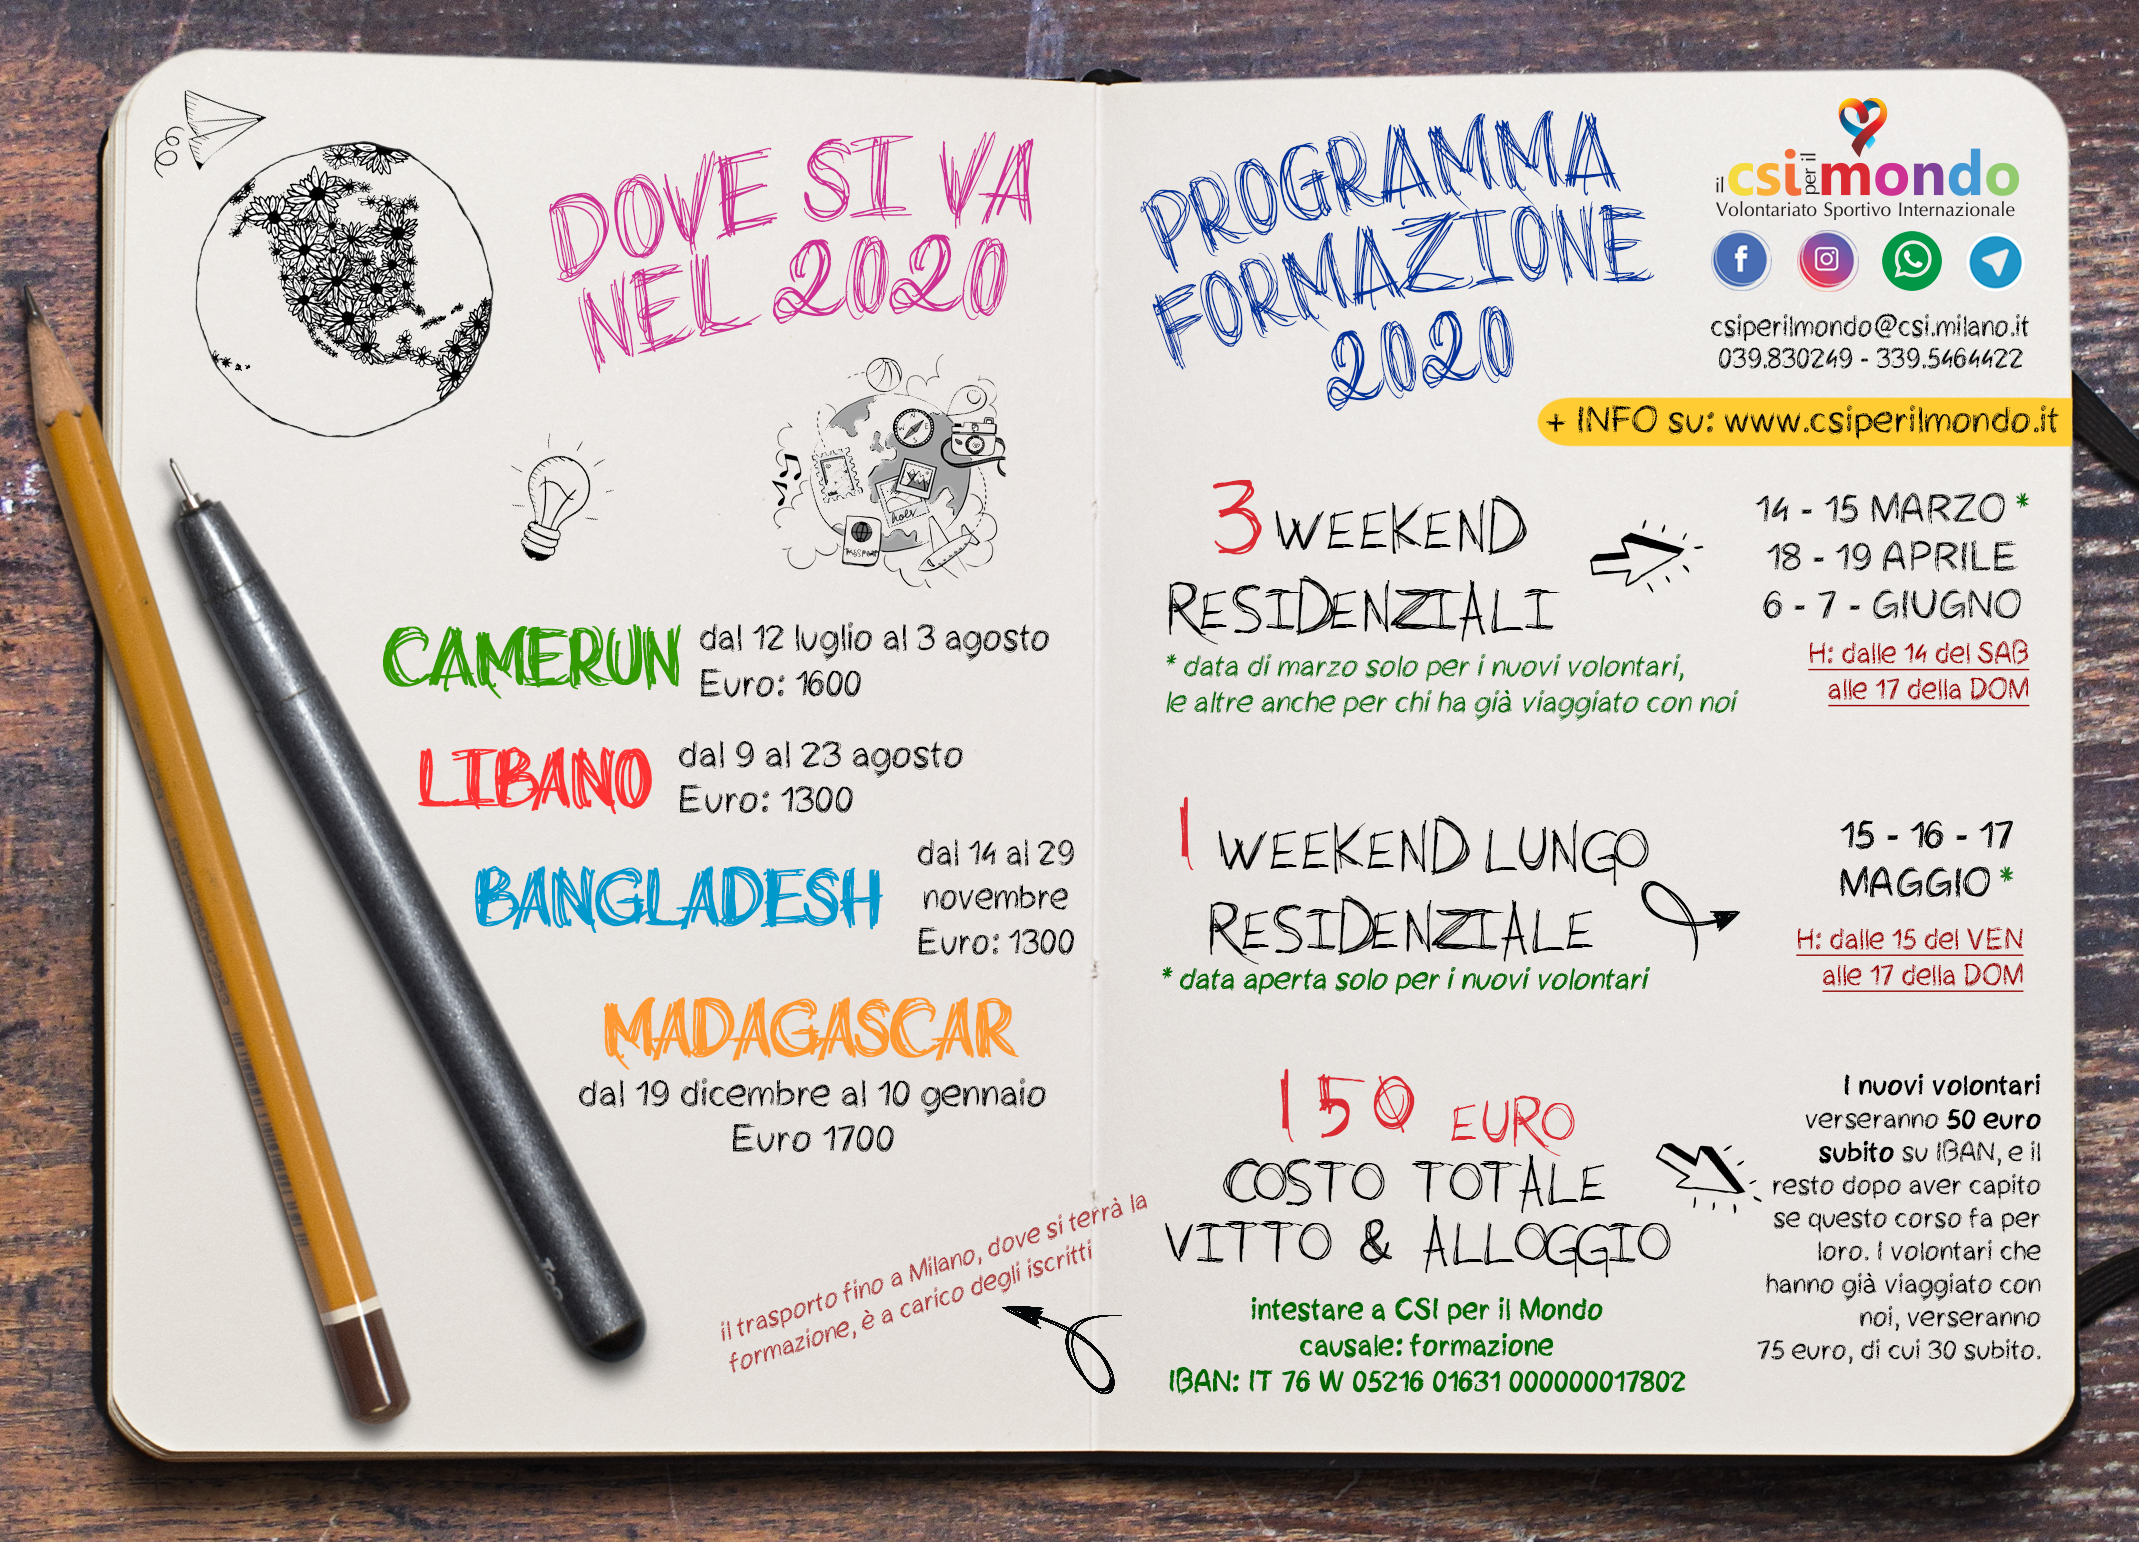 DOVE SI VA
NEL 2020
CAMERUN
dal 12 luglio al 3 agosto
Euro: 1600
LIBANO
dal 9 al 23 agosto
Euro: 1300
BANGLADESH
dal 14 al 29
novembre
Euro: 1300
MADAGASCAR
dal 19 dicembre al 10 gennaio
Euro 1700
il trasporto fino a Milano, dove si terrà la
formazione, è a carico degli iscritti
PROGRAMMA
FORMAZIONE
2020
il csi per il mondo
Volontariato Sportivo Internazionale
csiperilmondo@csi.milano.it
039.830249 - 339.5464422
+ INFO su: www.csiperilmondo.it
3 WEEKEND
RESIDENZIALI
14 - 15 MARZO *
18 - 19 APRILE
6 - 7 - GIUGNO
H: dalle 14 del SAB
alle 17 della DOM
* data di marzo solo per i nuovi volontari,
le altre anche per chi ha già viaggiato con noi
1 WEEKEND LUNGO
RESIDENZIALE
15 - 16 - 17
MAGGIO *
H: dalle 15 del VEN
alle 17 della DOM
* data aperta solo per i nuovi volontari
150 EURO
COSTO TOTALE
VITTO & ALLOGGIO
intestare a CSI per il Mondo
causale: formazione
IBAN: IT 76 W 05216 01631 000000017802
I nuovi volontari
verseranno 50 euro
subito su IBAN, e il
resto dopo aver capito
se questo corso fa per
loro. I volontari che
hanno già viaggiato con
noi, verseranno
75 euro, di cui 30 subito.